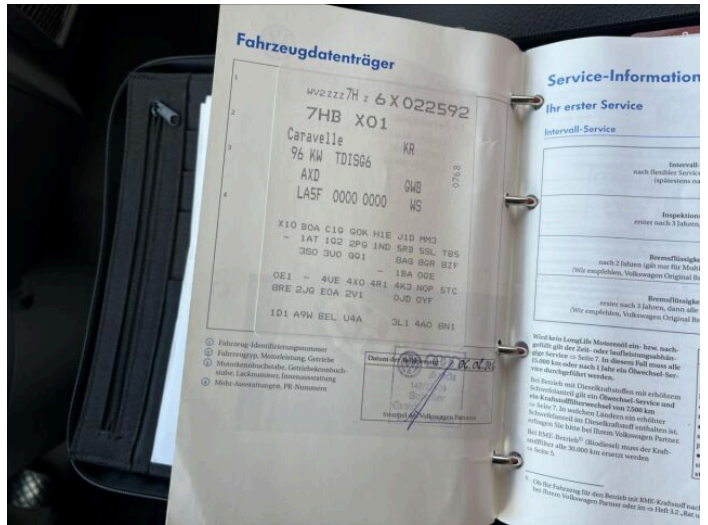 Fahrzeugdatenträger
1
WV2ZZZ7H Z 6X022592
2
7HB X01
3
Caravelle KR
96 KW TDISG6 0768
AXD GWB
4
LA5F 0000 0000 WS
X10 B0A C1Q G0K H1E J1D MM3
- 1AT 1Q2 2PG 1ND 5RD 5SL T85
3S0 3U0 QQ1 8AG 8QR 8ZF
- 1BA 0GE
0E1 - 4UE 4X0 4R1 4K3 N0P 5TC
8RE 2JG E0A 2V1 0JD 0YF
1D1 A9W BEL U4A 3L1 4A0 8N1
1 Fahrzeug-Identifizierungsnummer
2 Fahrzeugtyp, Motorleistung, Getriebe
3 Motorkennbuchstabe, Getriebekennbuch-
stabe, Lacknummer, Innenausstattung
4 Mehr-Ausstattungen, PR-Nummern
Datum der
Stempel des Volkswagen Partners
Service-Information
Ihr erster Service
Intervall-Service
Intervall-
nach flexibler Service
(spätestens na
Inspektion
erster nach 3 Jahren,
Bremsflüssigke
nach 2 Jahren (gilt nur für Multi
(Wir empfehlen, Volkswagen Original Br
Bremsflüssigke
erster nach 3 Jahren, dann alle
(Wir empfehlen, Volkswagen Original Br
Wird kein LongLife Motorenöl ein- bzw. nach-
gefüllt gilt der Zeit- oder laufleistungsabhän-
gige Service ⇒ Seite 7. In diesem Fall muss alle
15.000 km oder nach 1 Jahr ein Ölwechsel-Ser-
vice durchgeführt werden.
Bei Betrieb mit Dieselkraftstoffen mit erhöhtem
Schwefelanteil gilt ein Ölwechsel-Service und
ein Kraftstofffilterwechsel von 7500 km
⇒ Seite 7. In welchen Ländern ein erhöhter
Schwefelanteil im Dieselkraftstoff enthalten ist,
erfragen Sie bitte bei Ihrem Volkswagen Partner.
Bei RME-Betrieb (Biodiesel) muss der Kraft-
stofffilter alle 30.000 km ersetzt werden
⇒ Seite 5.
Ob Ihr Fahrzeug für den Betrieb mit RME-Kraftstoff nach
bei Ihrem Volkswagen Partner oder im ⇒ Heft 3.2 „Rat u